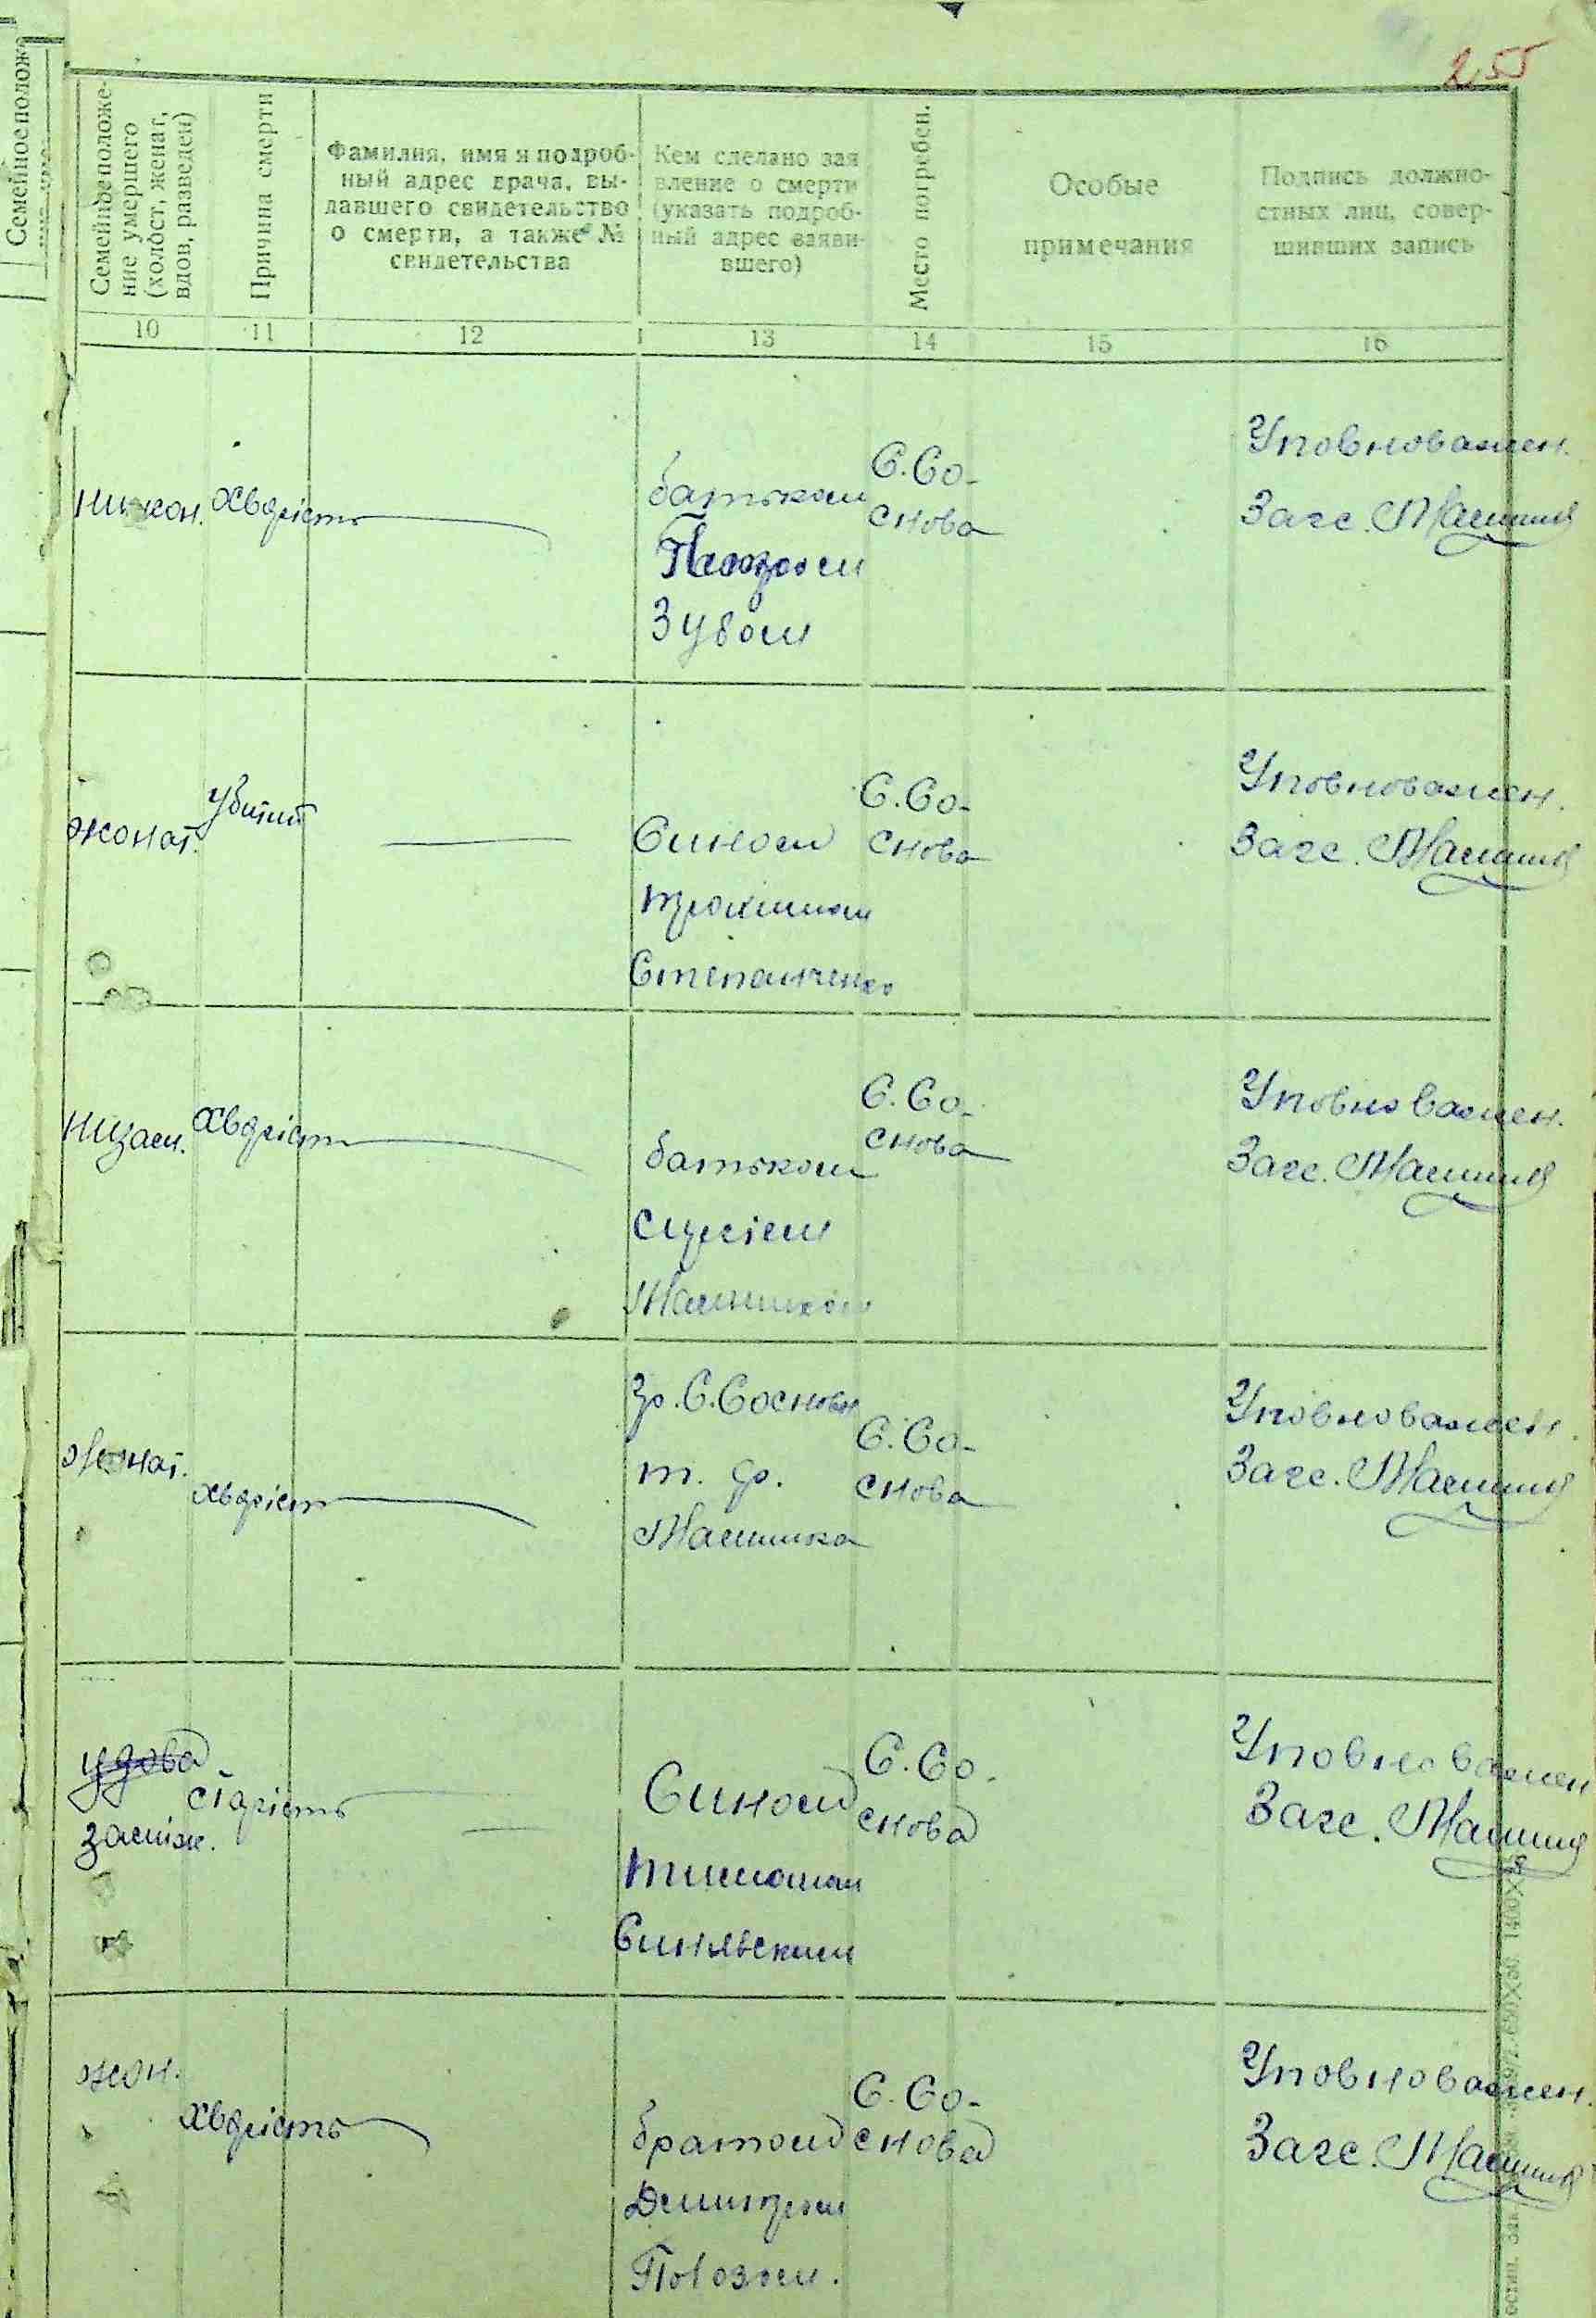 255
Семейное положе-
Семейное положе-
ние умершего
(холост, женат,
вдов, разведен)
Причина смерти
Фамилия, имя и подроб-
ный адрес врача, вы-
давшего свидетельство
о смерти, а также №
свидетельства
Кем сделано зая
вление о смерти
(указать подроб-
ный адрес заяви-
вшего)
Место погребен.
Особые
примечания
Подпись должно-
стных лиц, совер-
шивших запись
10 11 12 13 14 15 16
хворість
батьком
Зубом
С. Со-
снова
Уповноважен.
Загс.
жонат.
убитий
Сином
Трохимом
Степаненко
С. Со-
снова
Уповноважен.
Загс.
незам.
хворість
батьком
Сергієм
С. Со-
снова
Уповноважен.
Загс.
жонат.
хворість
гр. С. Соснова
т. ф.
Машика
С. Со-
снова
Уповноважен.
Загс.
удова
заміж.
старість
Сином
Тимошом
Синявским
С. Со-
снова
Уповноважен
Загс.
жон.
хворість
братом
Дмитром
Повозом.
С. Со-
снова
Уповноважен.
Загс.